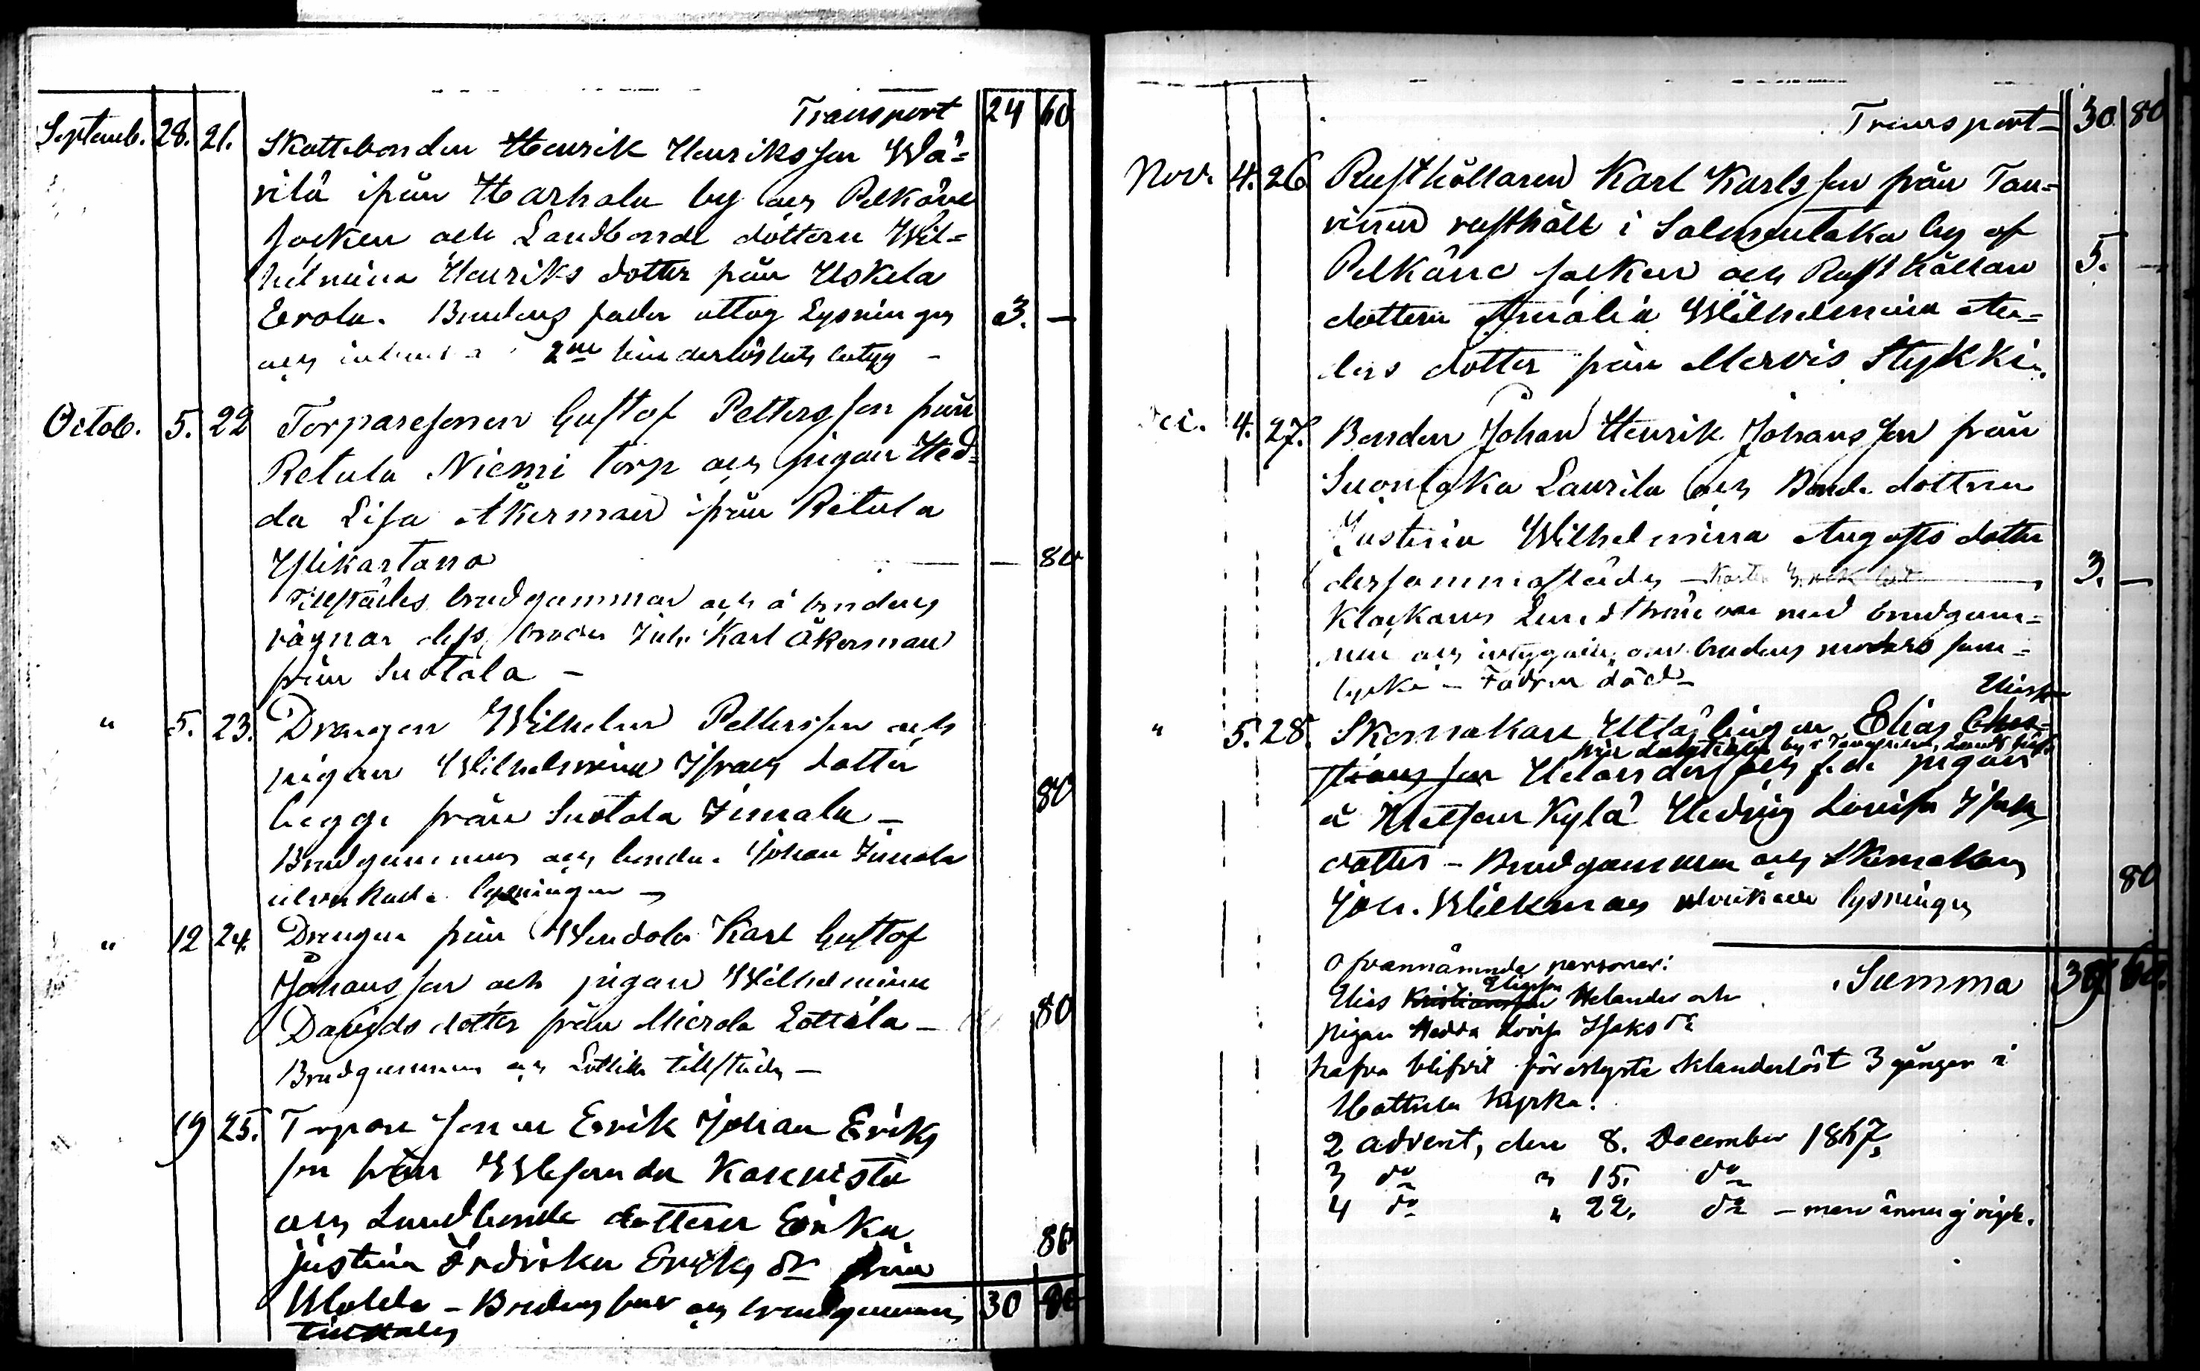 Transport 24 60
Septemb. 28. 21. Skattebonden Henrik Henriksson Wä=
rilä ifrån Harhala by och Pelkäne
socken och Landbonde dottern Wil=
helmina Henriks dotter från Uskela
Erola. Brudens fader uttog Lysningen 3. —
och 2ne hinderlöshets betyg —
Octob. 5. 22 Torparesonen Gustof Petterssson från
Retula Niemi torp och pigan Hed=
da Lisa Åkerman ifrån Retula
Ylikartano — — 80
Tillstädes brudgummen och å brudens
vägnar dess broder Karl Åkerman
från Suotala —
" 5. 23. Drängen Wilhelm Pettersson och
pigan Wilhelmina Isaks dotter
begge från Suotala Jimala — 80
Brudgummen och bonden Johan Jimala
utverkade lysningen —
" 12 24. Drängen från Wendola Karl Gustof
Johansson och pigan Wilhelmina
Davids dotter från Mierola Lottila — 80
Brudgummen och Lottila tillstädes —
19 25. Torpare sonen Erik Johan Eriks
son från Kankisto
och Landbonde dottern Erika
Justina Fredrika Eriks dr från 80
— Brudens far och brudgummen 30 80
tillstädes
Transport — 30 80
Nov. 4. 26 Rusthållaren Karl Karlsson från Tau=
rusthåll i Salmentaka by af
Pelkäne socken och Rusthållare 5. —
dottern Amalia Wilhelmina An=
ders dotter från Mervis Stykki.
Dec. 4. 27. Bonden Johan Henrik Johansson från
Suontaka Laurila och Bonde dottern
Justina Wilhelmina Augusts dotter
dersammastädes — 3. —
Klockaren Lindström var med brudgum=
men och intygade om brudens moders sam=
tycke — Fadren död —
Eliasson
" 5. 28. Skomakare Utlärlingen Elias Chri=
från by i
stiansson Helander och f.d. pigan
å Metsänkylä Hedvig Lovisa Isaks
dotter — Brudgummen och Skomakaren 80
Joh. Wilkman utverkade lysningen
Ofvannämnda personer: Summa 39 60.
Eliasson
Elias Kristiansson Helander och
pigan Hedda Lovisa Isaks dr
hafva blifvit förelyste klanderlöst 3 gånger i
Hattula Kyrka.
2 advent, den 8. December 1867,
3 do " 15. do
4 do " 22. do — men ännu ej vigde.